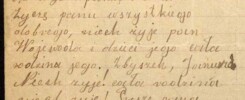 Życzę panu wszystkiego
dobrego, niech żyje pan
Wojewoda i dzieci jego cała
rodzina jego. Zbyszek, Janusz
Niech żyje! cała rodzina